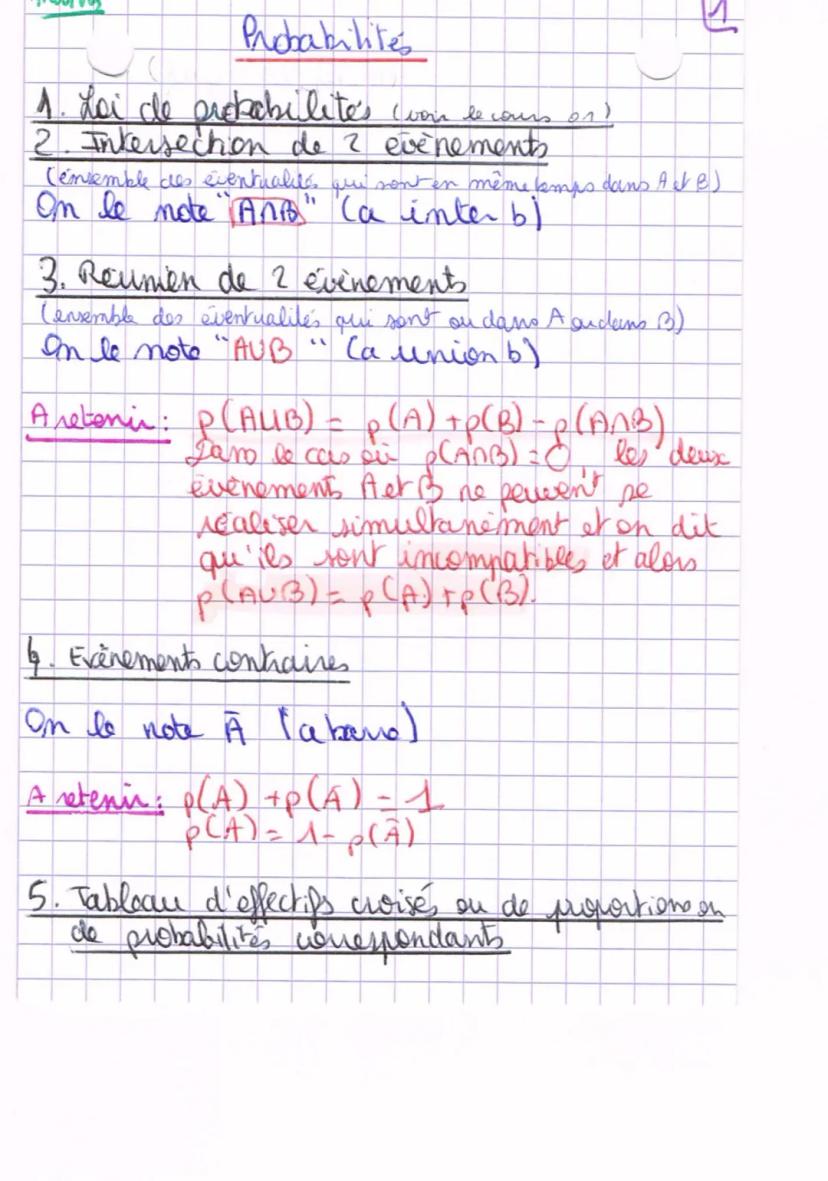 1
Probabilités
1. Loi de probabilités (voir le cours 01)
2. Intersection de 2 évènements
(ensemble des éventualités qui sont en même temps dans A et B)
On le note "A∩B" (a inter b)
3. Réunion de 2 évènements
(ensemble des éventualités qui sont ou dans A ou dans B)
On le note "A∪B" (a union b)
A retenir : p(A∪B) = p(A) + p(B) - p(A∩B)
Dans le cas où p(A∩B) = 0, les deux
évènements A et B ne peuvent se
réaliser simultanément et on dit
qu'ils sont incompatibles et alors
p(A∪B) = p(A) + p(B).
4. Evènements contraires
On le note Ā (a barre)
A retenir : p(A) + p(Ā) = 1
p(A) = 1 - p(Ā)
5. Tableau d'effectifs croisés ou de proportions ou
de probabilités correspondants